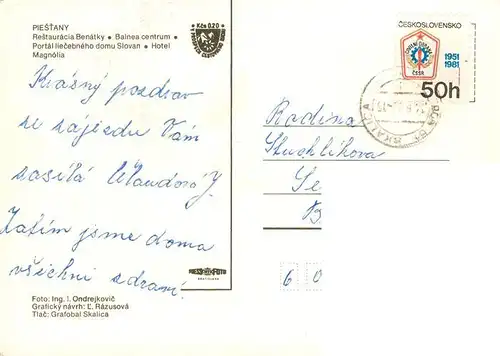 PIEŠŤANY
Reštaurácia Benátky • Balnea centrum •
Portál liečebného domu Slovan • Hotel
Magnólia
Kčs 0,20
ČESKOSLOVENSKO
1951
1981
ČSSR
50h
SKALICA
Krásný pozdrav
ze zájezdu Vám
zasílá
Zatím jsme doma
všichni zdraví.
Rodina
Stuchlíkova
Se
B
6 0
PRESSFOTO
BRATISLAVA
Foto: Ing. I. Ondrejkovič
Grafický návrh: Ľ. Rázusová
Tlač: Grafobal Skalica